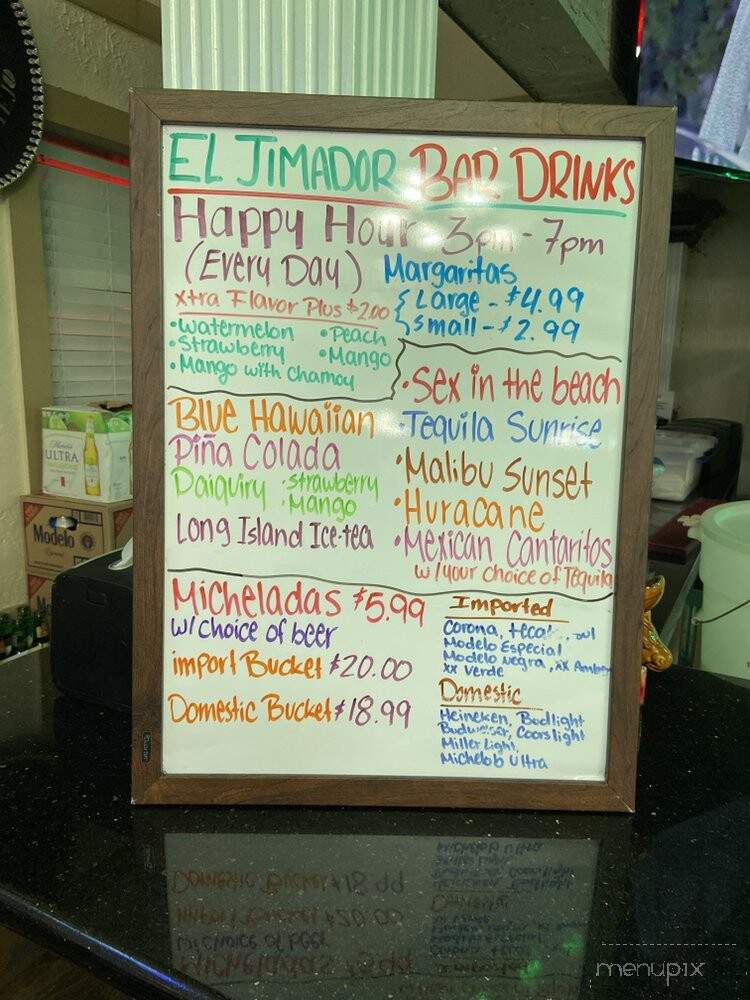 EL JIMADOR BAR DRINKS
Happy Hour 3pm - 7pm
(Every Day)
Margaritas
Large - $4.99
Small - $2.99
xtra Flavor Plus $2.00
•Watermelon •Peach
•Strawberry •Mango
•Mango with Chamoy
Blue Hawaiian
Piña Colada
Daiquiry •Strawberry
•Mango
Long Island Ice-tea
•Sex in the beach
•Tequila Sunrise
•Malibu Sunset
•Huracane
•Mexican Cantaritos
w/your choice of Tequila
Micheladas $5.99
w/choice of beer
import Bucket $20.00
Domestic Bucket $18.99
Imported
Corona,
Modelo Especial
Modelo Negra, XX Amber
XX Verde
Domestic
Heineken, Budlight
Budweiser, Coorslight
Miller Light,
Michelob Ultra
ULTRA
Modelo
Especial
menupix